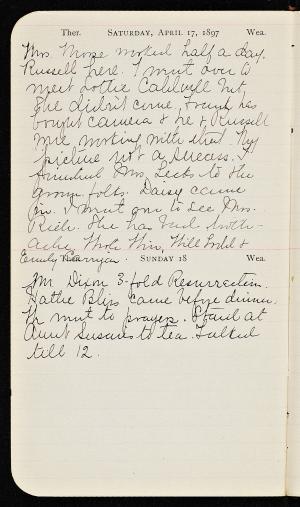 Ther. SATURDAY, APRIL 17, 1897 Wea.
Mrs. Morse worked half a day.
Russell here. I went over to
meet Lottie Caldwell but
she didn't come, Frank has
bought camera & he & Russell
were working with that. My
picture not a success. I
furnished Mrs. to the
groom folks. Daisy came
in. I went over to see Mrs.
Rich. She has had tooth-
ache, Will Todd &
Emily Harrigan
Ther. SUNDAY 18 Wea.
Mr. Dixon 3-fold Resurrection.
Hattie Bliss came before dinner.
We went to prayers. Staid at
Aunt Susan's to tea. Talked
till 12.